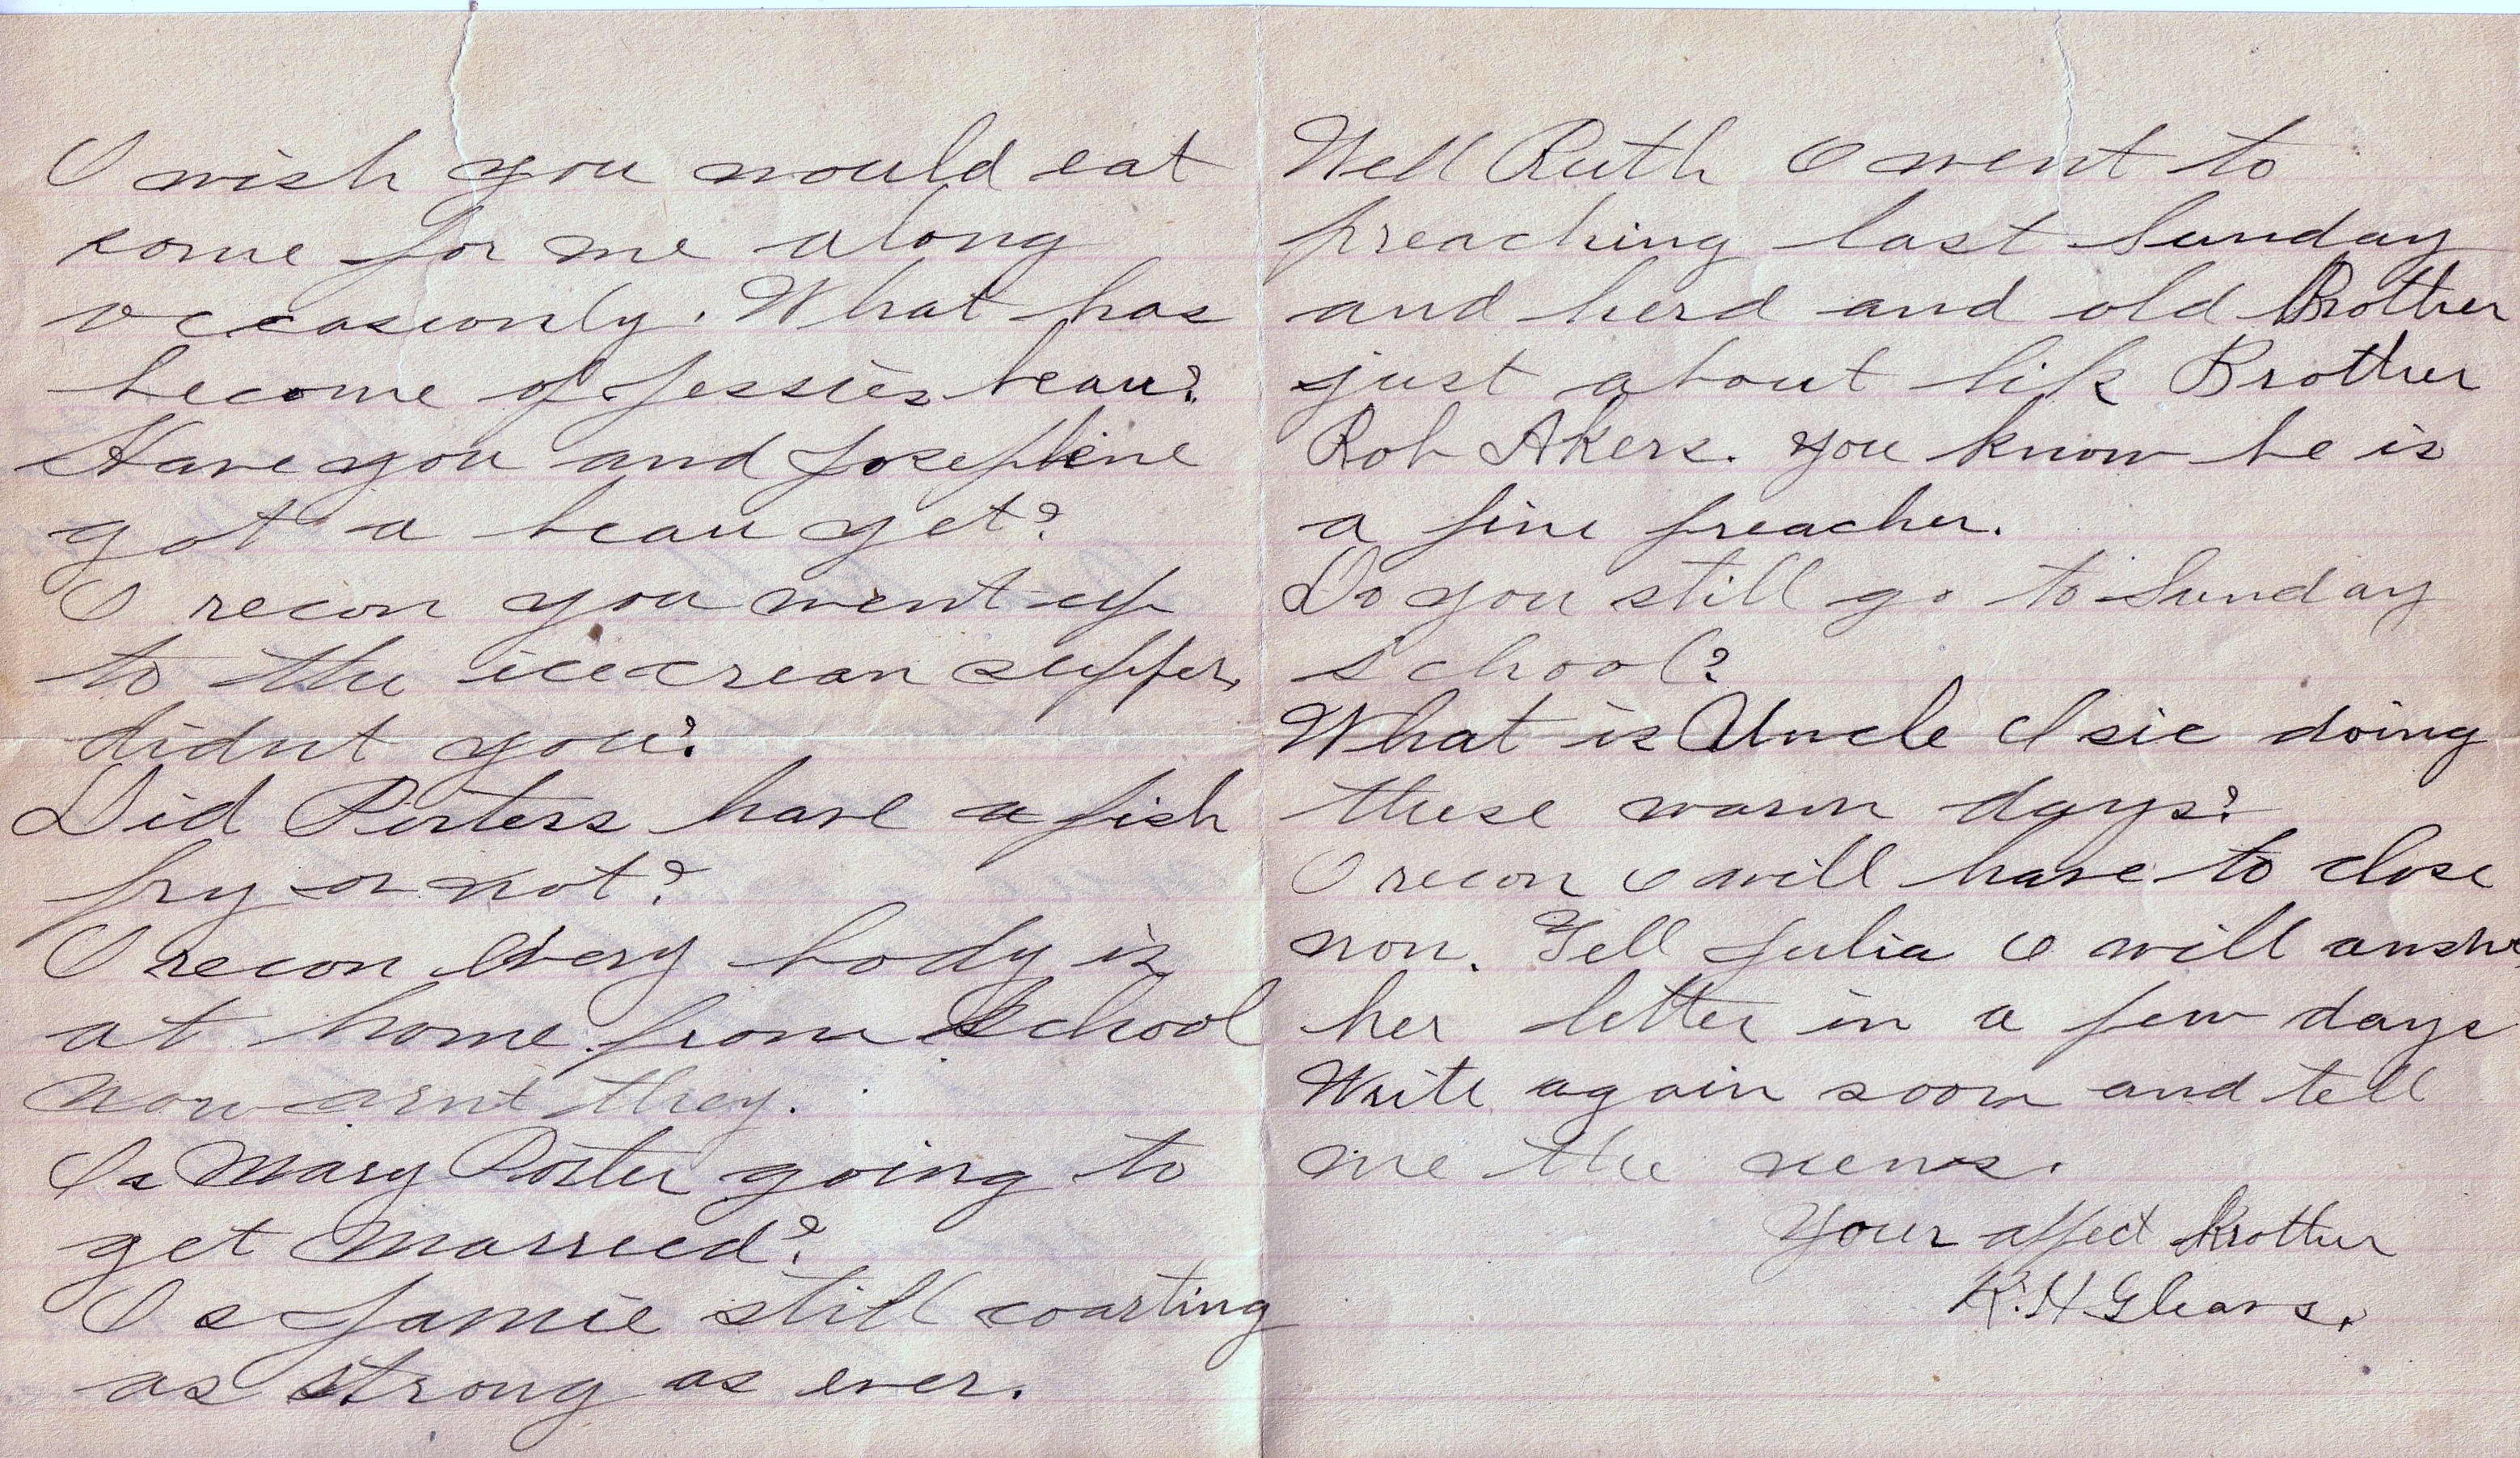 I wish you would eat
some for me along
occasionly. What has
become of Jessies beau?
Have you and Josephine
got a beau yet?
I recon you went up
to the icecrean supper,
didnt you?
Did Porters have a fish
fry or not?
I recon Every body is
at home from School
now arnt they.
Is Mary Porter going to
get Married?
Is Jamie still coarting
as strong as ever.
Well Ruth I went to
preaching last Sunday
and herd and old Brother
just about like Brother
Rob Akers. you know he is
a fine preacher.
Do you still go to Sunday
School?
What is Uncle Isie doing
these warm days?
I recon I will have to close
now. Tell Julia I will answe
her letter in a few days
Write again soon and tell
me the news.
Your affect Brother
K. H Gleaves.